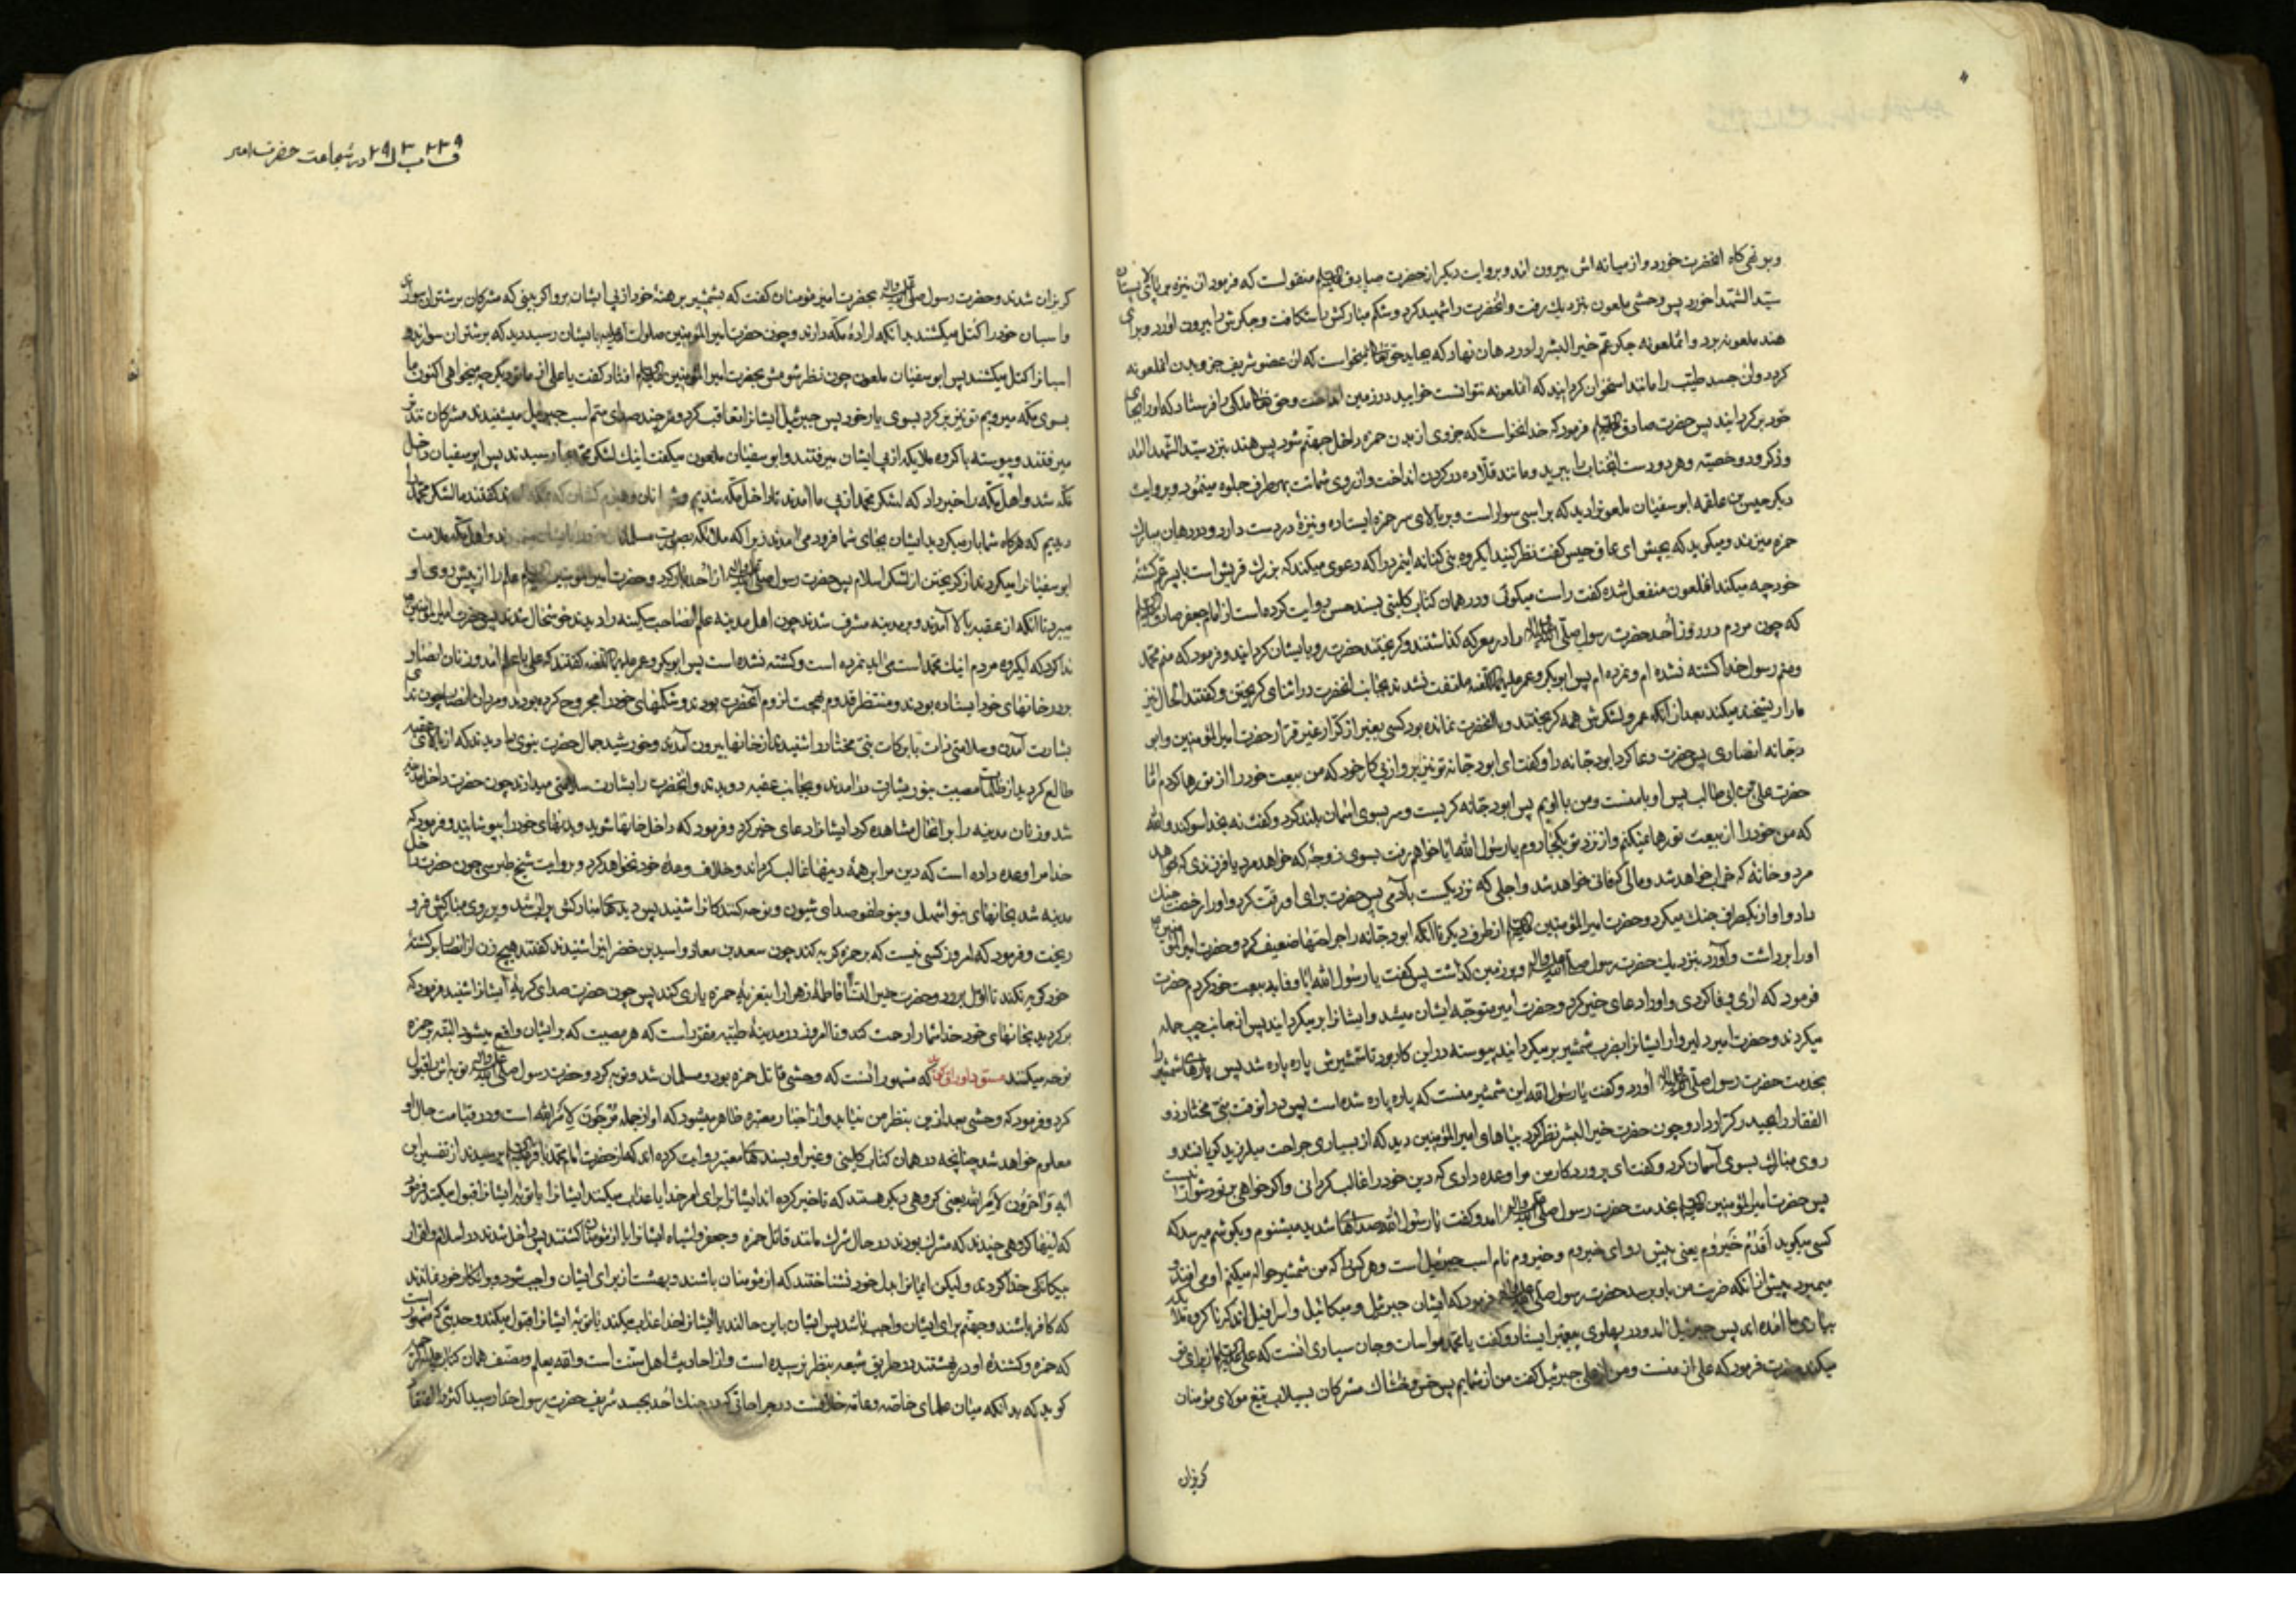 وبر تهی کاه آنحضرت خورد و از میانه اش بیرون آمد و بروایت دیگر از حضرت صادق علیه السلم منقولست که فرمود آن نیزه بر بالای پستان
سید الشهدا خورد پس وحشی ملعون بنزدیک رفت و آنحضرت را شهید کرد و شکم مبارکش را شکافت و جگرش را بیرون آورد و برای
هند ملعونه برد و آنملعونه جگر عم خیر البشر را در دهان نهاد که بخاید حق تعالی نمیخواست که آن عضو شریف جزو بدن آنملعونه
گردد آن جسد طیب را مانند استخوان گردانید که آنملعونه نتوانست خوایید در زمین انداخت و حق تعالی ملکی را فرستاد که او را بجای
خود برگردانید پس حضرت صادق علیه السلم فرمود که خدا نخواست که جزوی از بدن حمزه داخل جهنم شود پس هند بنزد سید الشهدا آمد
و ذکر و دو خصیه و هر دو دست آنجناب را ببرید و مانند قلاده در گردن انداخت و از روی شماتت بهر طرف جلوه مینمود و بروایت
دیگر حیس بن علقمه ابو سفیان ملعونرا دید که بر اسبی سوار است و بر بالای سر حمزه ایستاده و نیزهٔ در دست دارد و در دهان مبارک
حمزه میزند و میگوید که بچش ای عاق حیس گفت نظر کنید ای گروه بنی کنانه اینمرد را که دعوی میکند که بزرک قریش است با پسر عم کشتهٔ
خود چه میکند آنملعون منفعل شده گفت راست میگوئی و در همان کتاب کلینی بسند حسن روایت کرده است از امام جعفر صادق علیه السلم
که چون مردم در روز احد حضرت رسول صلی الله علیه واله را در معرکه گذاشتند و گریختند حضرت رو بایشان گردانید و فرمود که منم محمد
و منم رسول خدا کشته نشده ام و نمرده ام پس ابوبکر و عمر ملتفت نشدند بجانب آنحضرت در اثنای گریختن و گفتند الحال نیز
ما را ریشخند میکند بعد از آنکه عمر و لشکرش همه گریختند و با آنحضرت نمانده بود کسی بغیر از کرار غیر فرار حضرت امیر المؤمنین و ابو
دجانه انصاری پس حضرت دعا کرد ابو دجانه را و گفت ای ابو دجانه تو نیز برو از پی کار خود که من بیعت خود را از تو رها کردم اما
حضرت علی بن ابی طالب پس او با منست و من با اویم پس ابو دجانه گریست و سر بسوی آسمان بلند کرد و گفت نه بخدا سوگند و الله
که من خود را از بیعت تو رها نمیکنم و از نزد تو بکجا روم یا رسول الله آیا خواهم رفت بسوی زوجهٔ که خواهد مرد یا فرزندی که خواهد
مرد و خانهٔ که خراب خواهد شد و مالی که فانی خواهد شد و اجلی که نزدیکست بآدمی پس حضرت برای او رقت کرد و او را رخصت جنک
داد و او از یکطرف جنک میکرد و حضرت امیر المؤمنین علیه السلم از طرف دیگر تا آنکه ابو دجانه را جراحتها ضعیف کرد و حضرت امیر المؤمنین
او را برداشت و آورد بنزدیک حضرت رسول صلی الله علیه واله و بر زمین گذاشت پس گفت یا رسول الله آیا وفا ببیعت خود کردم حضرت
فرمود که آری وفا کردی و او را دعای خیر کرد و حضرت امیر متوجه ایشان میشد و ایشانرا بر میگردانید پس از جانب چپ حمله
میکردند و حضرت امیر دلیر وار ایشانرا بضرب شمشیر بر میگردانید پیوسته در این کار بود تا شمشیرش پاره پاره شد پس پارهای شمشیر را
بخدمت حضرت رسول صلی الله علیه واله آورد و گفت یا رسول الله این شمشیر منست که پاره پاره شده است پس در آنوقت نبی مختار ذو
الفقار را بحیدر کرار داد و چون حضرت خیر البشر نظر کرد بپاهای امیر المؤمنین دید که از بسیاری جراحت میلرزید گریانشد و
روی مبارک بسوی آسمان کرد و گفت ای پروردگار من مرا وعده دادی که دین خود را غالب گردانی و اگر خواهی بر تو دشوار نیست
پس حضرت امیر المؤمنین علیه السلم بخدمت حضرت رسول صلی الله علیه واله آمد و گفت یا رسول الله صداهای شدید میشنوم و بگوشم میرسد که
کسی میگوید اقدم خیزوم یعنی پیش رو ای خیزوم و خیزوم نام اسب جبرئیل است و هر کس را که من شمشیر حواله میکنم او می افتد و
میمیرد پیش از آنکه ضربت من باو برسد حضرت رسول صلی الله علیه واله فرمود که ایشان جبرئیل و میکائیل و اسرافیل اند که با گروه ملائکه
بیاری ما آمده اند پس جبرئیل آمد و در پهلوی پیغمبر ایستاد و گفت یا محمد مواسات و جان سپاری اینست که علی علیه السلم از برای تو
میکند حضرت فرمود که علی از منست و من از علی جبرئیل گفت من از شمایم پس خس و خاشاک مشرکان بسیلاب تیغ مولای مؤمنان
گریزان
ف ۲۳۹ ب ۳ ل ۲۹ در شجاعت حضرت امیر
گریزان شدند و حضرت رسول صلی الله علیه واله بحضرت امیر مؤمنان گفت که بشمشیر برهنهٔ خود از پی ایشان برو اگر بینی که مشرکان بر شتران سوارند
و اسبان خود را کتل میکشند بدانکه ارادهٔ مکه دارند و چون حضرت امیر المؤمنین صلوات الله علیه بایشان رسید دید که بر شتران سوارند و
اسبانرا کتل میکشند پس ابو سفیان ملعون چون نظر شومش بحضرت امیر المؤمنین علیه السلم افتاد گفت یا علی از ما تو دیگر چه میخواهی اکنون ما
بسوی مکه میرویم تو نیز بر گرد بسوی یار خود پس جبرئیل ایشانرا تعاقب کرد و هر چند صدای سم اسب جبرئیل میشنیدند مشرکان تندتر
میرفتند و پیوسته با گروه ملایکه از پی ایشان میرفتند و ابو سفیان ملعون میگفت اینک لشکر محمد بما رسیدند پس ابو سفیان داخل
مکه شد و اهل مکه را خبر داد که لشکر محمد از پی ما آمدند تا داخل مکه شدیم و شبانان و هیزم کشان که بمکه آمدند گفتند ما لشکر محمد را
دیدیم که هرگاه شما بار میکردید ایشان بجای شما فرود می آمدند زیرا که ملائکه بصورت مسلمانان خود را بایشان مینمودند و اهل مکه ملامت
ابو سفیانرا میکردند از گریختن از لشکر اسلام پس حضرت رسول صلی الله علیه واله از احد بار کرد و حضرت امیر المؤمنین علیه السلم علم را از پیش روی او
میبرد تا آنکه از عقبه بالا آمدند و بر مدینه مشرف شدند چون اهل مدینه علم آنصاحب سکینه را دیدند خوشحال شدند پس حضرت امیر المؤمنین
ندا کرد که ایگروه مردم اینک محمد است می آید نمرده است و کشته نشده است پس ابوبکر و عمر گفتند که علی با علم آمد و زنان انصار
بر در خانهای خود ایستاده بودند و منتظر قدوم بهجت لزوم آنحضرت بودند و شکلهای خود را مجروح کرده بودند و مردان انصار چون ندای
بشارت آمدن و سلامتی ذات با برکات نبی مختار را شنیدند از خانها بیرون آمدند و خورشید جمال حضرت نبوی را دیدند که از بالای عقبه
طالع گردید از ظلمات مصیبت بنور بشارت در آمدند و بجانب عقبه دویدند و آنحضرت را بشارت سلامتی میدادند چون حضرت داخل مدینه
شد و زنان مدینه را بر آنحال مشاهده کرد ایشانرا دعای خیر کرد و فرمود که داخل خانها شوید و بدنهای خود را بپوشانید و فرمود که
خدا مرا وعده داده است که دین مرا بر همهٔ دینها غالب گرداند و خلاف وعدهٔ خود نخواهد کرد و بروایت شیخ طبرسی چون حضرت داخل
مدینه شد بخانهای بنو اشهل و بنو ظفر صدای شیون و نوحه کنندگانرا شنید پس دیدهای مبارکش پر آب شد و بر روی مبارکش فرو
ریخت و فرمود که امروز کسی نیست که بر حمزه گریه کند چون سعد بن معاذ و اسید بن خضیر اینرا شنیدند گفتند هیچ زن از انصار بر کشتهٔ
خود گریه نکند تا اول برود و حضرت خیر النسا فاطمهٔ زهرا را بتعزیهٔ حمزه یاری کند پس چون حضرت صدای گریهٔ ایشانرا شنید فرمود که
برگردید بخانهای خود خدا شما را رحمت کند و تا امروز در مدینهٔ طیبه مقرر است که هر مصیبت که بر ایشان واقع میشود البته بر حمزه
نوحه میکنند مسود اوراق گوید که مشهور آنست که وحشی قاتل حمزه بود و مسلمان شد و توبه کرد و حضرت رسول صلی الله علیه واله توبه اش را قبول
کرد و فرمود که وحشی بعد ازین بنظر من نیاید و از اخبار معتبره ظاهر میشود که او از جمله مرجون لامر الله است و در قیامت حال او
معلوم خواهد شد چنانچه در همان کتاب کلینی و غیر او بسندهای معتبر روایت کرده اند که از حضرت امام محمد باقر علیه السلم پرسیدند از تفسیر این
آیه و آخرون لامر الله یعنی گروهی دیگر هستند که تاخیر کرده اند ایشانرا برای امر خدا یا عذاب میکند ایشانرا یا توبهٔ ایشانرا قبول میکند فرمود
که اینها گروهی چندند که مشرک بودند در حال شرک مانند قاتل حمزه و جعفر و اشباه ایشانرا از مؤمنان کشتند پس داخل شدند در اسلام و اقرار
بیگانگی خدا کردند و لیکن ایمانرا بدل خود نشناختند که از مؤمنان باشند و بهشت از برای ایشان واجب شود و بر انکار خود نماندند
که کافر باشند و جهنم برای ایشان واجب باشد پس ایشان باین حالند یا ایشانرا خدا عذاب میکند یا توبهٔ ایشانرا قبول میکند و حدیثی که مشهور است
که حمزه و کشندهٔ او در بهشتند در طریق شیعه بنظر نرسیده است و از احادیث اهل سنت است والله یعلم و مصنف همان کتاب
گوید که بدانکه میان علمای خاصه و عامه خلافست در جراحاتی که در جنک احد بجسد شریف حضرت رسول خدا رسید اکثر را اعتقاد